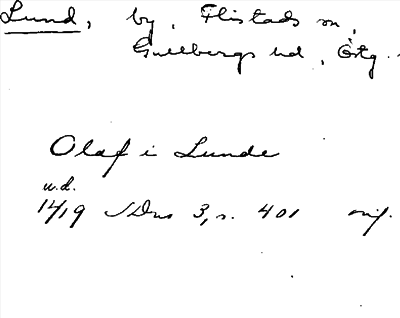 Lund, by, Flistads sn,
Gullbergs hd, Ötg.
Olaf i Lunde
u.d.
1419 SDns 3, s. 401 orig.